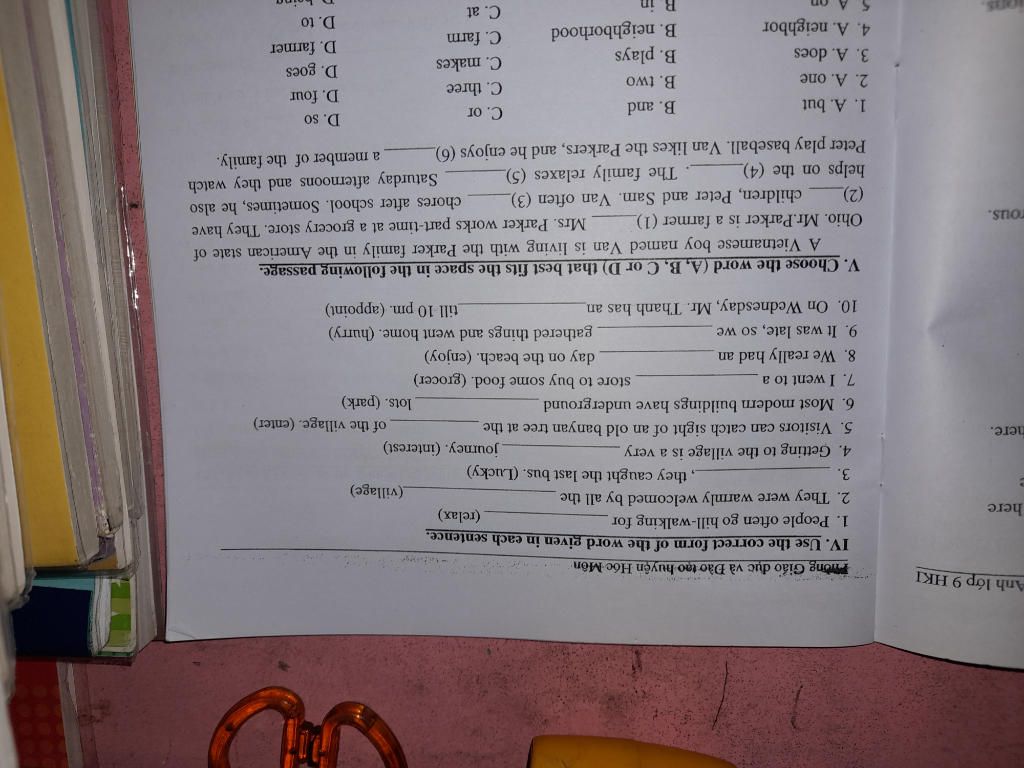 Phòng Giáo dục và Đào tạo huyện Hóc Môn
IV. Use the correct form of the word given in each sentence.
1. People often go hill-walking for __________ (relax)
2. They were warmly welcomed by all the __________(village)
3. __________, they caught the last bus. (Lucky)
4. Getting to the village is a very __________ journey. (interest)
5. Visitors can catch sight of an old banyan tree at the __________ of the village. (enter)
6. Most modern buildings have underground __________ lots. (park)
7. I went to a __________ store to buy some food. (grocer)
8. We really had an __________ day on the beach. (enjoy)
9. It was late, so we __________ gathered things and went home. (hurry)
10. On Wednesday, Mr. Thanh has an__________till 10 pm. (appoint)
V. Choose the word (A, B, C or D) that best fits the space in the following passage.
A Vietnamese boy named Van is living with the Parker family in the American state of
Ohio. Mr.Parker is a farmer (1)_____ Mrs. Parker works part-time at a grocery store. They have
(2)____ children, Peter and Sam. Van often (3)_____ chores after school. Sometimes, he also
helps on the (4)______. The family relaxes (5)______ Saturday afternoons and they watch
Peter play baseball. Van likes the Parkers, and he enjoys (6)______ a member of the family.
1. A. but B. and C. or D. so
2. A. one B. two C. three D. four
3. A. does B. plays C. makes D. goes
4. A. neighbor B. neighborhood C. farm D. farmer
5. A. on B. in C. at D. to
D. being
Anh lớp 9 HKI
here
here.